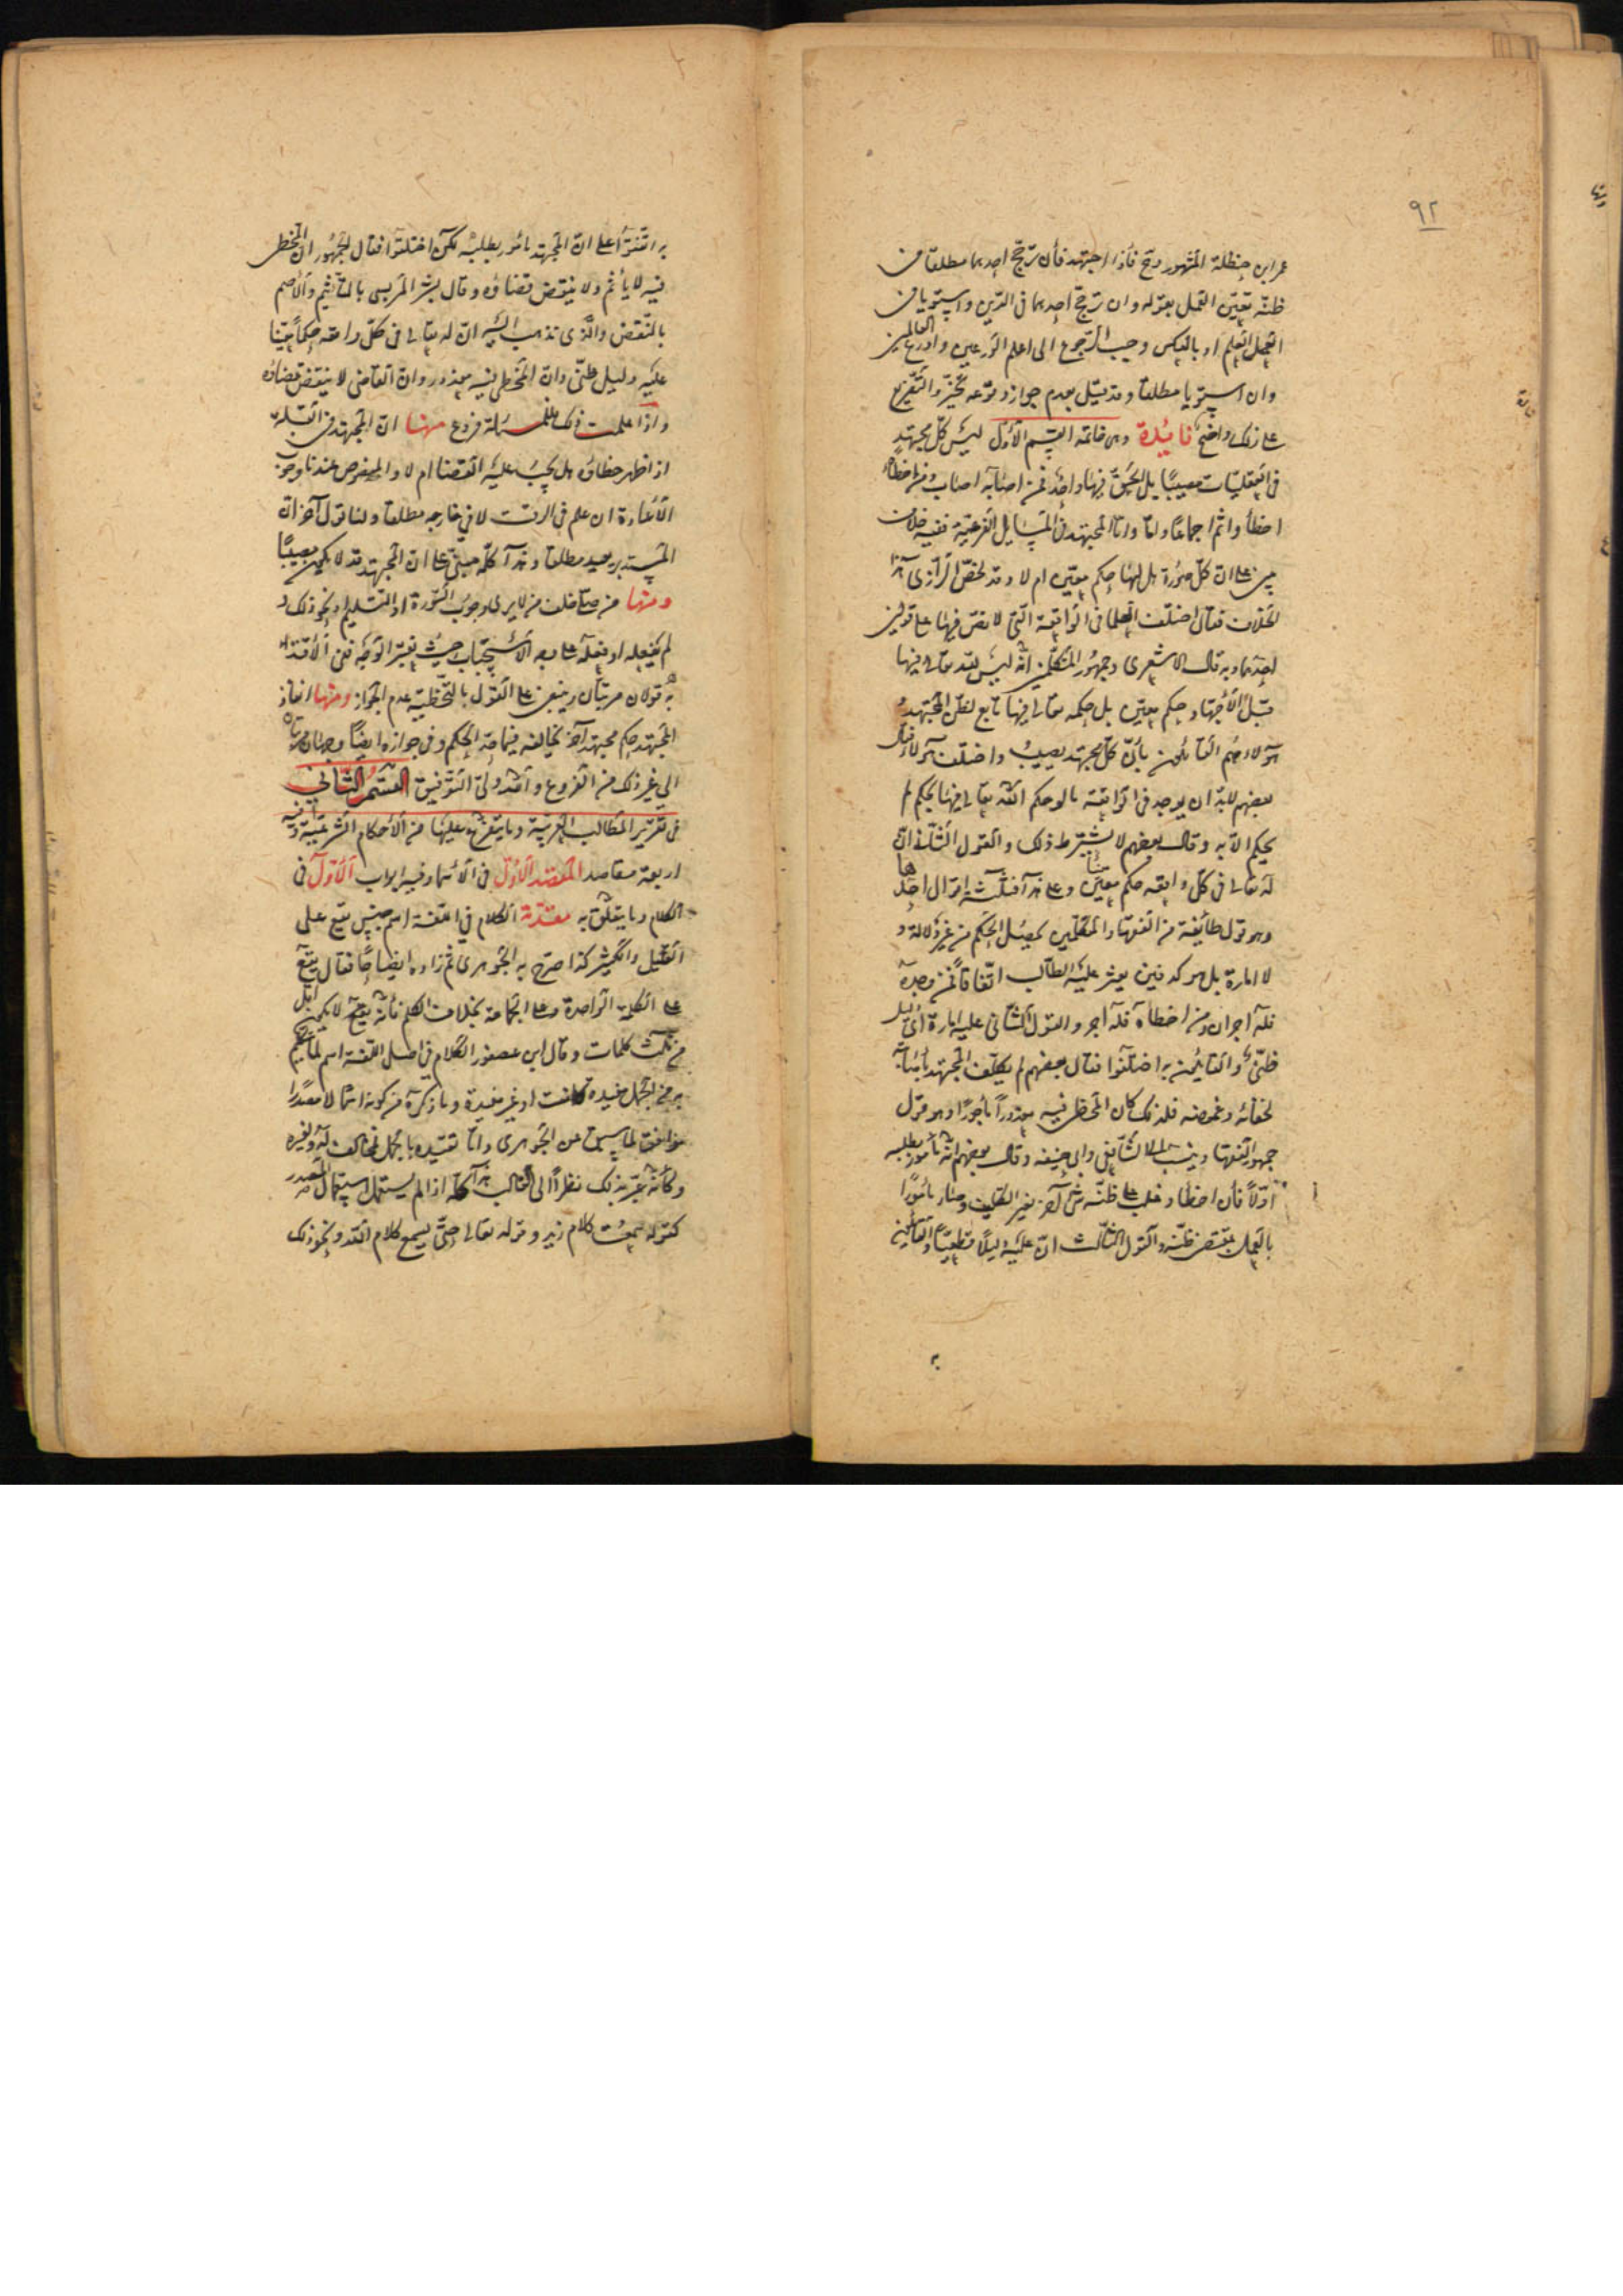 ٩٢
عمر ابن حنظلة المشهور وح فاذا اجتهد فأن ترجّح احدهما مطلقا في
ظنّه تعيّن العمل بقوله وان ترجّح احدهما في الدّين واستويا في
العلم او بالعكس وجب الرّجوع الى اعلم الورعين واورع العالمين
وان استويا مطلقا وقد قيل بعدم جواز وقوعه تخيّر والتّفريع
على ذلك واضح فائدة وهى خاتمة القسم الأوّل ليس كلّ مجتهد
في العقليّات مصيبًا بل الحقّ فيها واحد فمن اصابه اصاب ومن اخطأه
اخطأ واثم اجماعًا وامّا المجتهد في المسايل الفرعيّة ففيه خلاف
مبنى على انّ كلّ صورة هل لها حكم معيّن ام لا وقد لخّص الرّازى هذا
الخلاف فقال اختلف العلما في الواقعة الّتى لا نصّ فيها على قولين
احدهما وبه قال الاشعرى وجمهور المتكلّمين انّه ليس للّه تعالى فيها
قبل الأجتهاد حكم معيّن بل حكمه تعالى فيها تابع لظنّ المجتهد و
هولاء هم القائلون بأنّ كلّ مجتهد مصيب واختلف هولاء فقال
بعضهم لا بدّ ان يوجد في الواقعة ما لو حكم اللّه تعالى فيها بحكم لم
يحكم الّا به وقال بعضهم لا يشترط ذلك والقول الثّانى انّ
له تعالى في كلّ واقعه حكم معيّن وعلى هذا فثلثة اقوال احدها
وهو قول طايفة من الفقها والمتكلّمين يحصل الحكم من غير دلالة و
لا امارة بل هو كدفين يعثر عليه الطّالب اتّفاقًا فمن وجده
فله اجران ومن اخطأه فله اجر والقول الثّانى عليه امارة اى دليل
ظنّى والقايلون به اختلفوا فقال بعضهم لم يكلّف المجتهد باصابته
لخفائه وغموضه فلذلك كان المخطى فيه معذورًا مأجورًا وهو قول
جمهور الفقها وينسب الى الشّافعى وابى حنيفه وقال بعضهم انّه مأمور بطلبه
اوّلاً فأن اخطأ وغلب على ظنّه شئ آخر تغيّر التّكليف وصار مأمورًا
بالعمل بمقتضى ظنّه والقول الثّالث انّ عليه دليلًا قطعيًّا والقائلين
به اتّفقوا على انّ المجتهد مأمور بطلبه لكن اختلفوا فقال الجمهور انّ المخطى
فيه لا يأثم ولا ينقض قضاؤه وقال بشر المريسى بالتأثيم والأصم
بالنّقض والّذى نذهب اليه انّ له تعالى في كلّ واقعه حكمًا معيّنا
عليه دليل ظنّى وانّ المخطى فيه معذور وانّ القاضى لا ينقض قضاؤه
واذا علمت ذلك فللمسئلة فروع منها انّ المجتهد في القبله
اذا ظهر خطاؤه هل يجب عليه القضا ام لا والمنصوص عندنا وجوب
الأعادة ان علم في الوقت لا في خارجه مطلقا ولنا قول آخر انّ
المستدبر يعيد مطلقا وهذا كلّه مبنىّ على انّ المجتهد قد لا يكون مصيبًا
ومنها من صلّى خلف من لا يرى وجوب السّورة او التّسليم او نحو ذلك و
لم يفعله او فعله على وجه الأستحباب حيث يعتبر الوجه ففى الأقتدا
به قولان مرتبان وينبغى على القول بالتّخطية عدم الجواز ومنها انفاذ
المجتهد حكم مجتهد آخر يخالفه فيما خذ الحكم وفي جوازه ايضًا وجهان مرتبان
الى غير ذلك من الفروع واللّه ولىّ التّوفيق القسم الثّانى
في تقرير المطالب العربيّة وما يتفرّع عليها من الأحكام الشّرعيّة وفيه
اربعة مقاصد المقصد الأوّل في الأسما وفيه ابواب الأوّل في
الكلام وما يتعلّق به مقدّمة الكلام في اللّغة اسم جنس يقع على
القليل والكثير كذا صرّح به الجوهرى ثمّ زاده ايضاحًا فقال يقع
على الكلمة الواحدة وعلى الجماعة بخلاف الكلم فأنّه جمع لا يكون اقلّ
من ثلث كلمات وقال ابن عصفور الكلام في اصل اللّغة اسم لما يتكلّم
به من الجمل مفيده كانت او غير مفيدة وما ذكره من كونه اسمًا لا مصدرًا
موافق لما سبق عن الجوهرى وامّا تقييده بالجمل فمخالف له ولغيره
وكأنّه عبّر بذلك نظرًا الى الغالب هذا كلّه اذا لم يستعمل استعمال المصدر
كقوله سمعت كلام زيد وقوله تعالى حتّى يسمع كلام اللّه ونحو ذلك